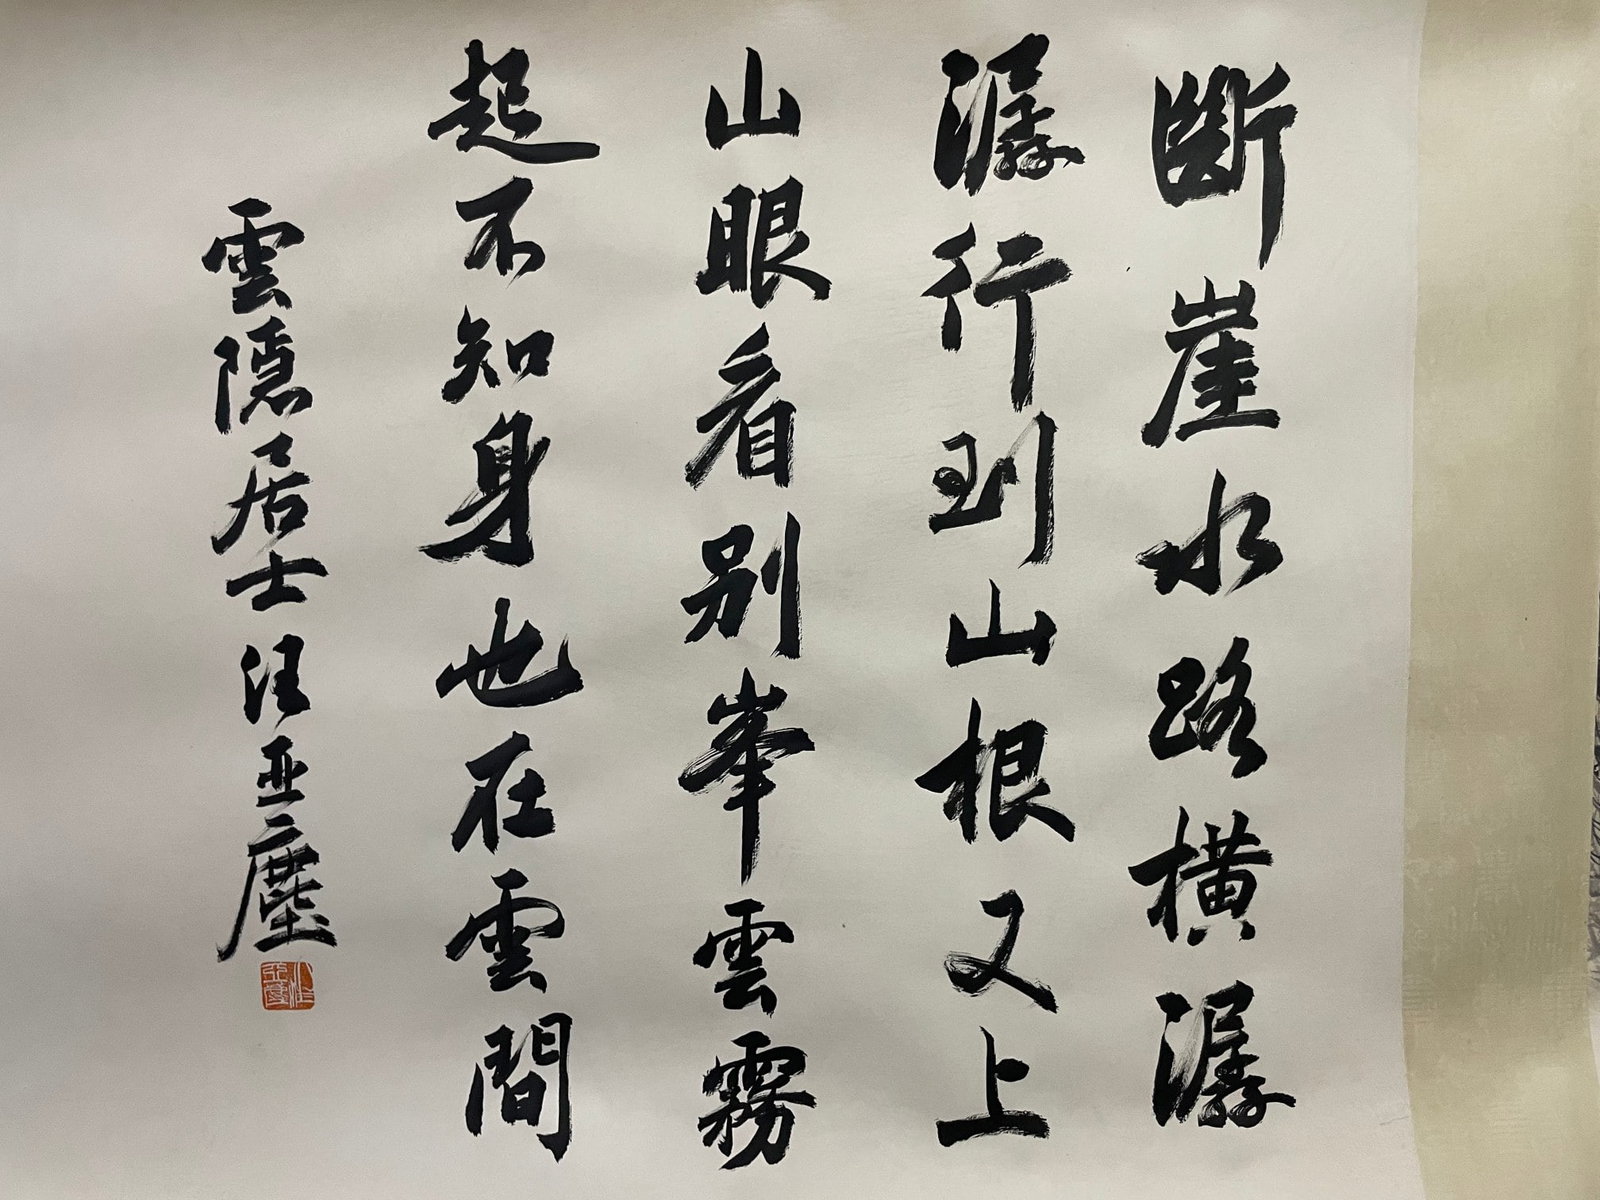 斷崖水路橫潺
潺行到山根又上
山眼看别峯雲霧
起不知身也在雲間
雲隱居士汪亞塵